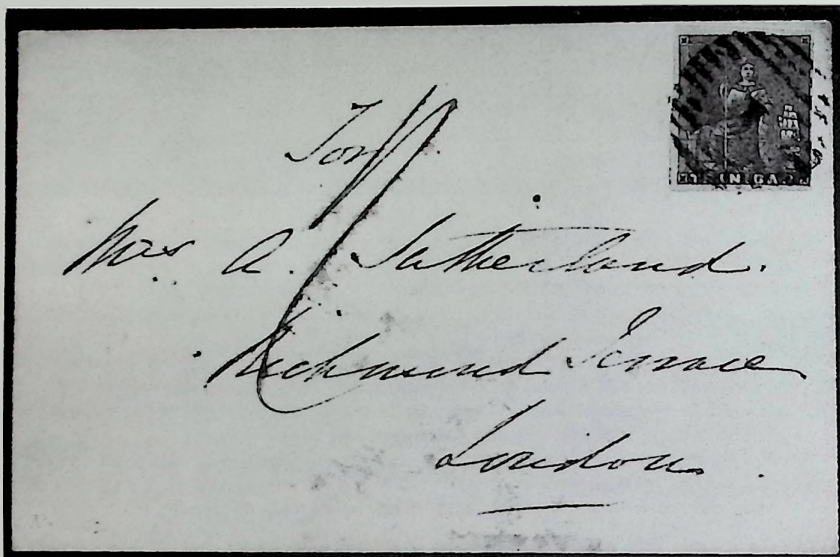 TRINIDAD
For
Mrs A. Sutherland.
Richmond Terrace
London.